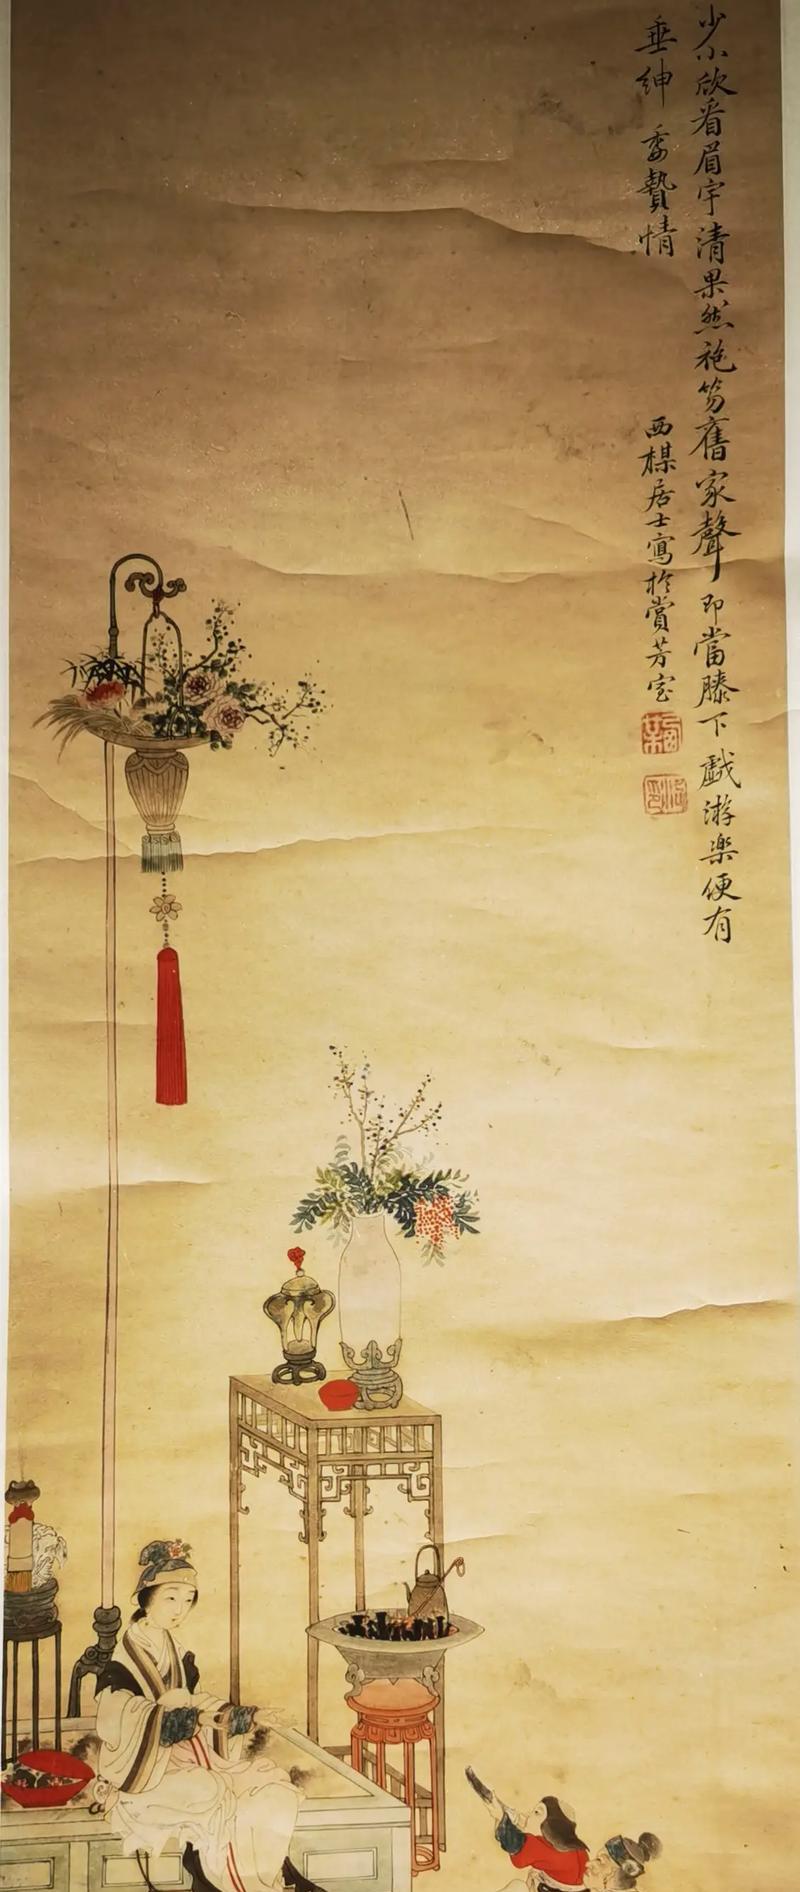 少小欣看眉宇清果然袍笏舊家聲即當膝下戲游樂便有
垂紳委贄情
西楳居士寫於賞芳室